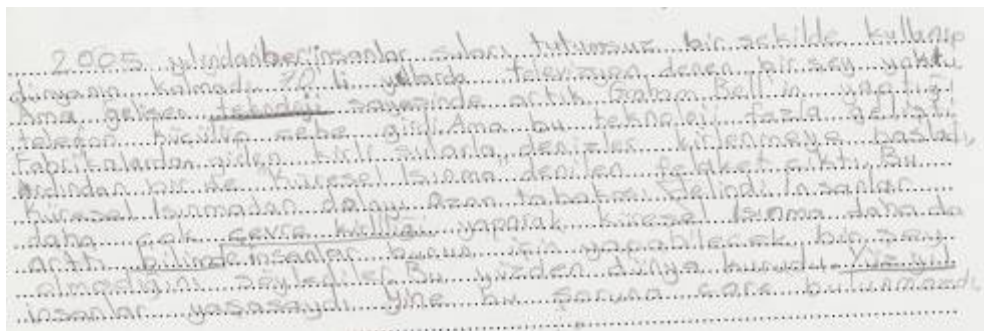 2005 yılındanberi insanlar suları tutumsuz bir şekilde kullanıp
dünyanın kalmadı 70'li yıllarda televizyon denen bir şey yoktu
Ama gelişen teknoloji sayesinde artık Graham Bell'in yaptığı
telefon küçülüp cebe girdi. Ama bu teknoloji fazla gelişti
Fabrikalardan giden kirli sularla, denizler kirlenmeye başladı,
Ardından bir de "Küresel Isınma denilen felaket çıktı. Bu
Küresel Isınmadan dolayı Ozon tabakası delindi. İnsanlar
daha çok çevre kirliliği yaparak küresel Isınma daha da
arttı insanlar bunun için yapabilecek bir şey
olmadığını söylediler. Bu yüzden dünya kurudu. Yüz yıl
insanlar yaşasaydı yine bu soruna çare bulunmazdı